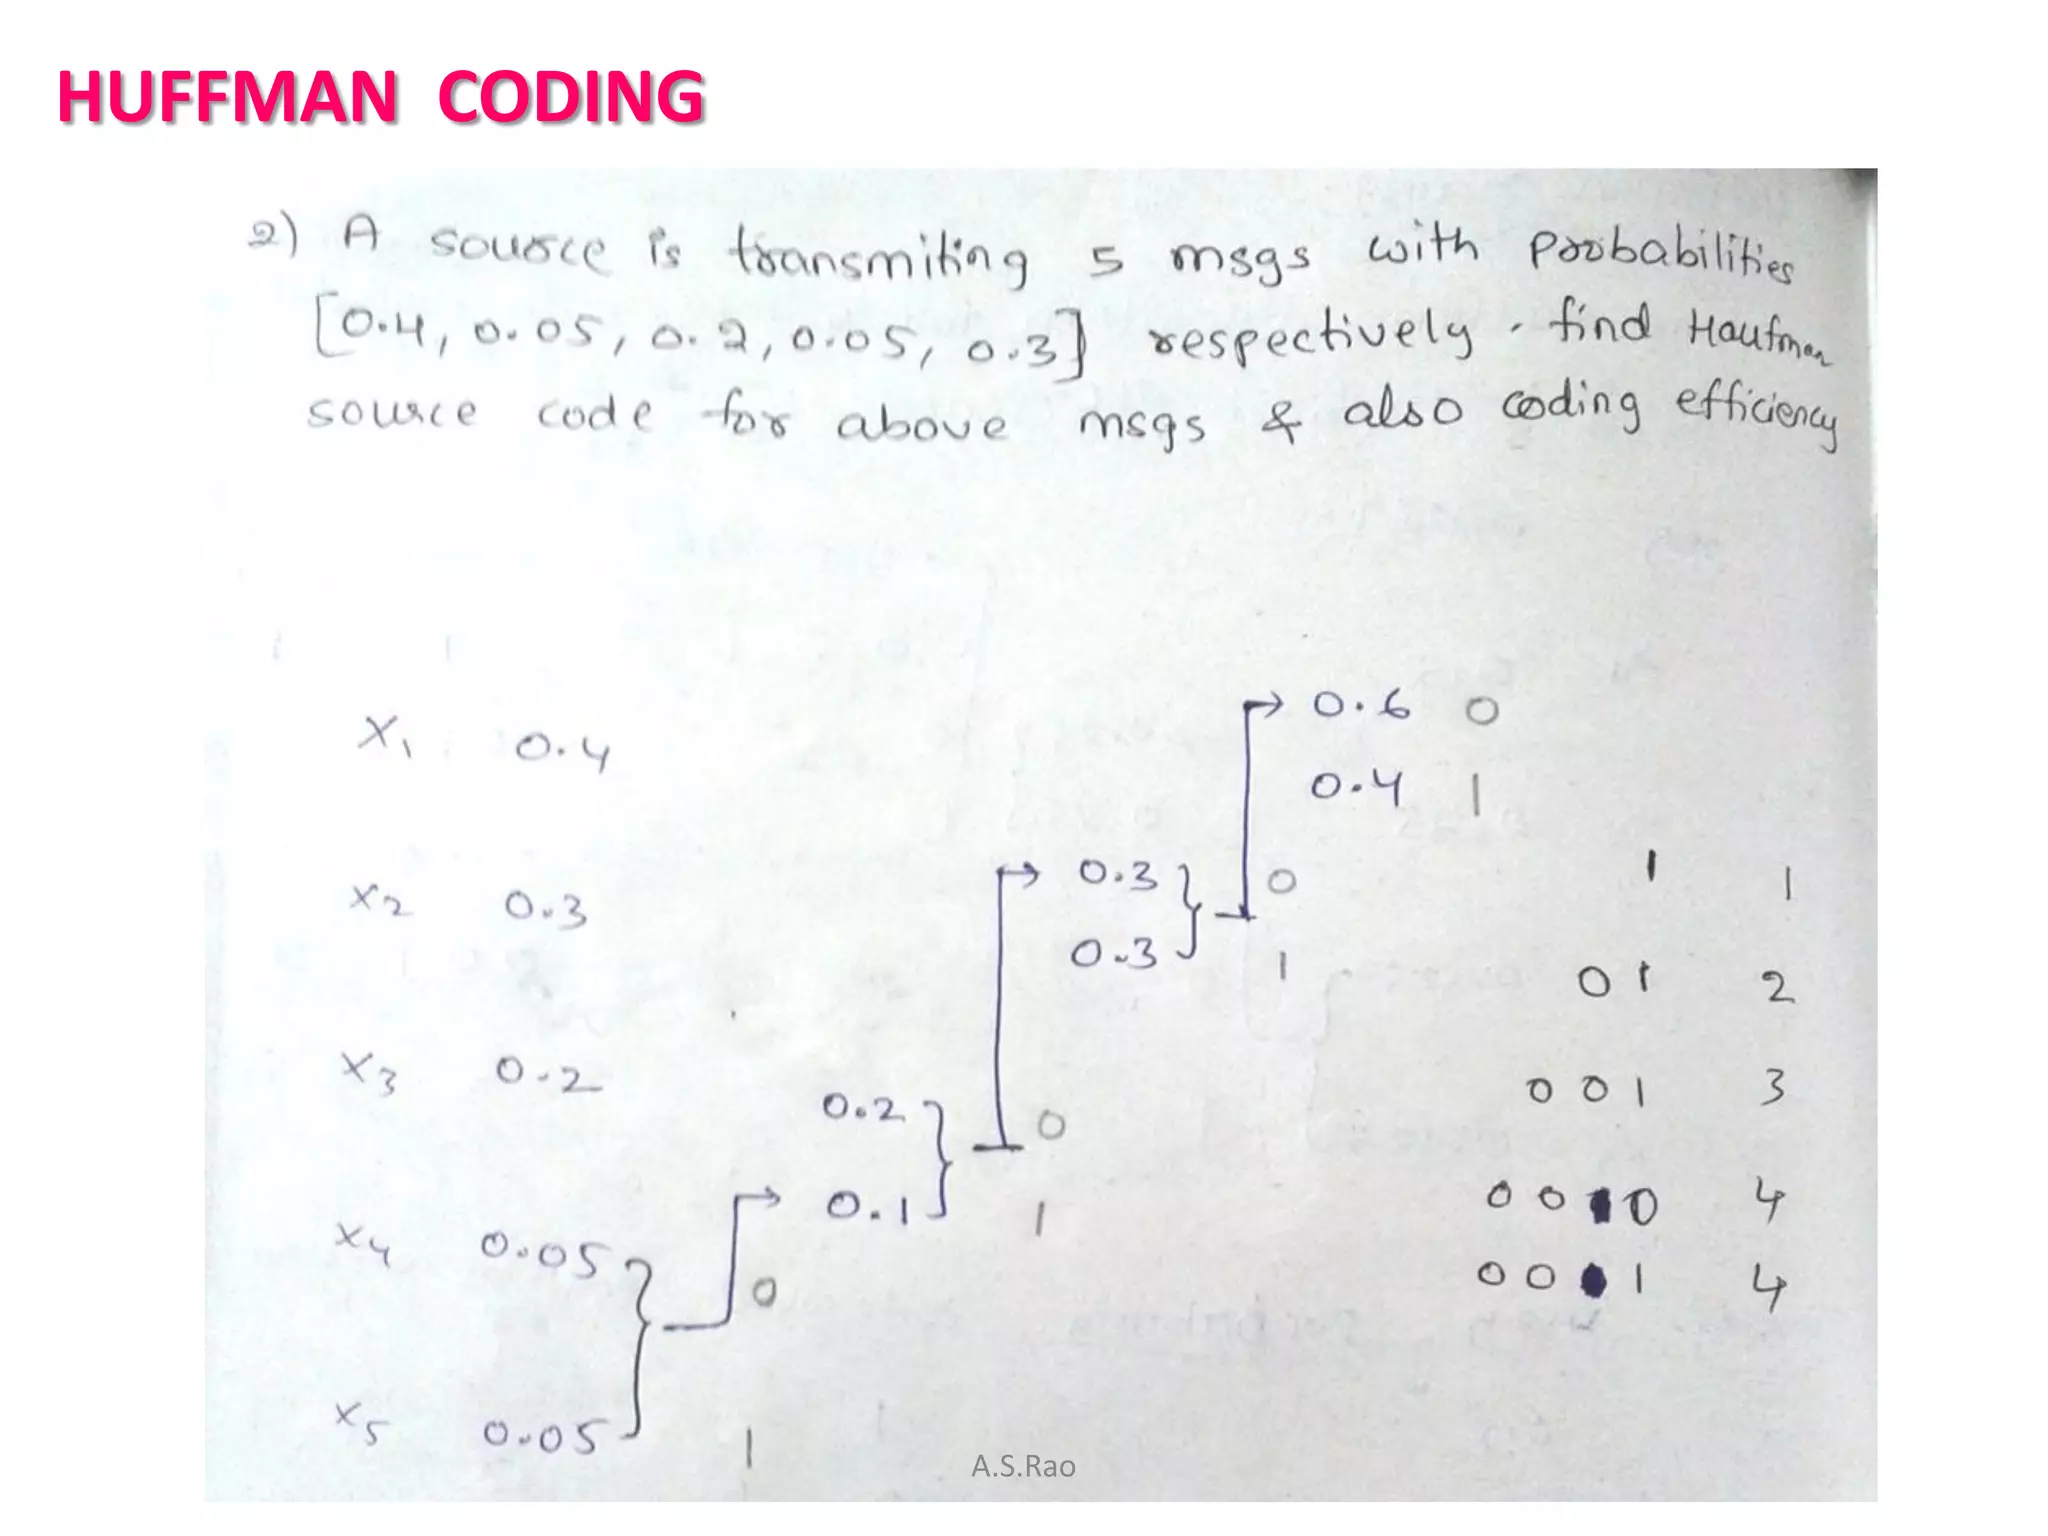 HUFFMAN CODING
2) A source is transmiting 5 msgs with probabilities
[0.4, 0.05, 0.2, 0.05, 0.3] respectively. find Haufman
source code for above msgs & also coding efficiency
0.6 0
X1 0.4
0.4 1
1 1
0.3 0
X2 0.3
0.3 1
01 2
X3 0.2
001 3
0.2 0
0.1 1
00 0 4
X4 0.05
0
00 1 4
X5 0.05 1
A.S.Rao